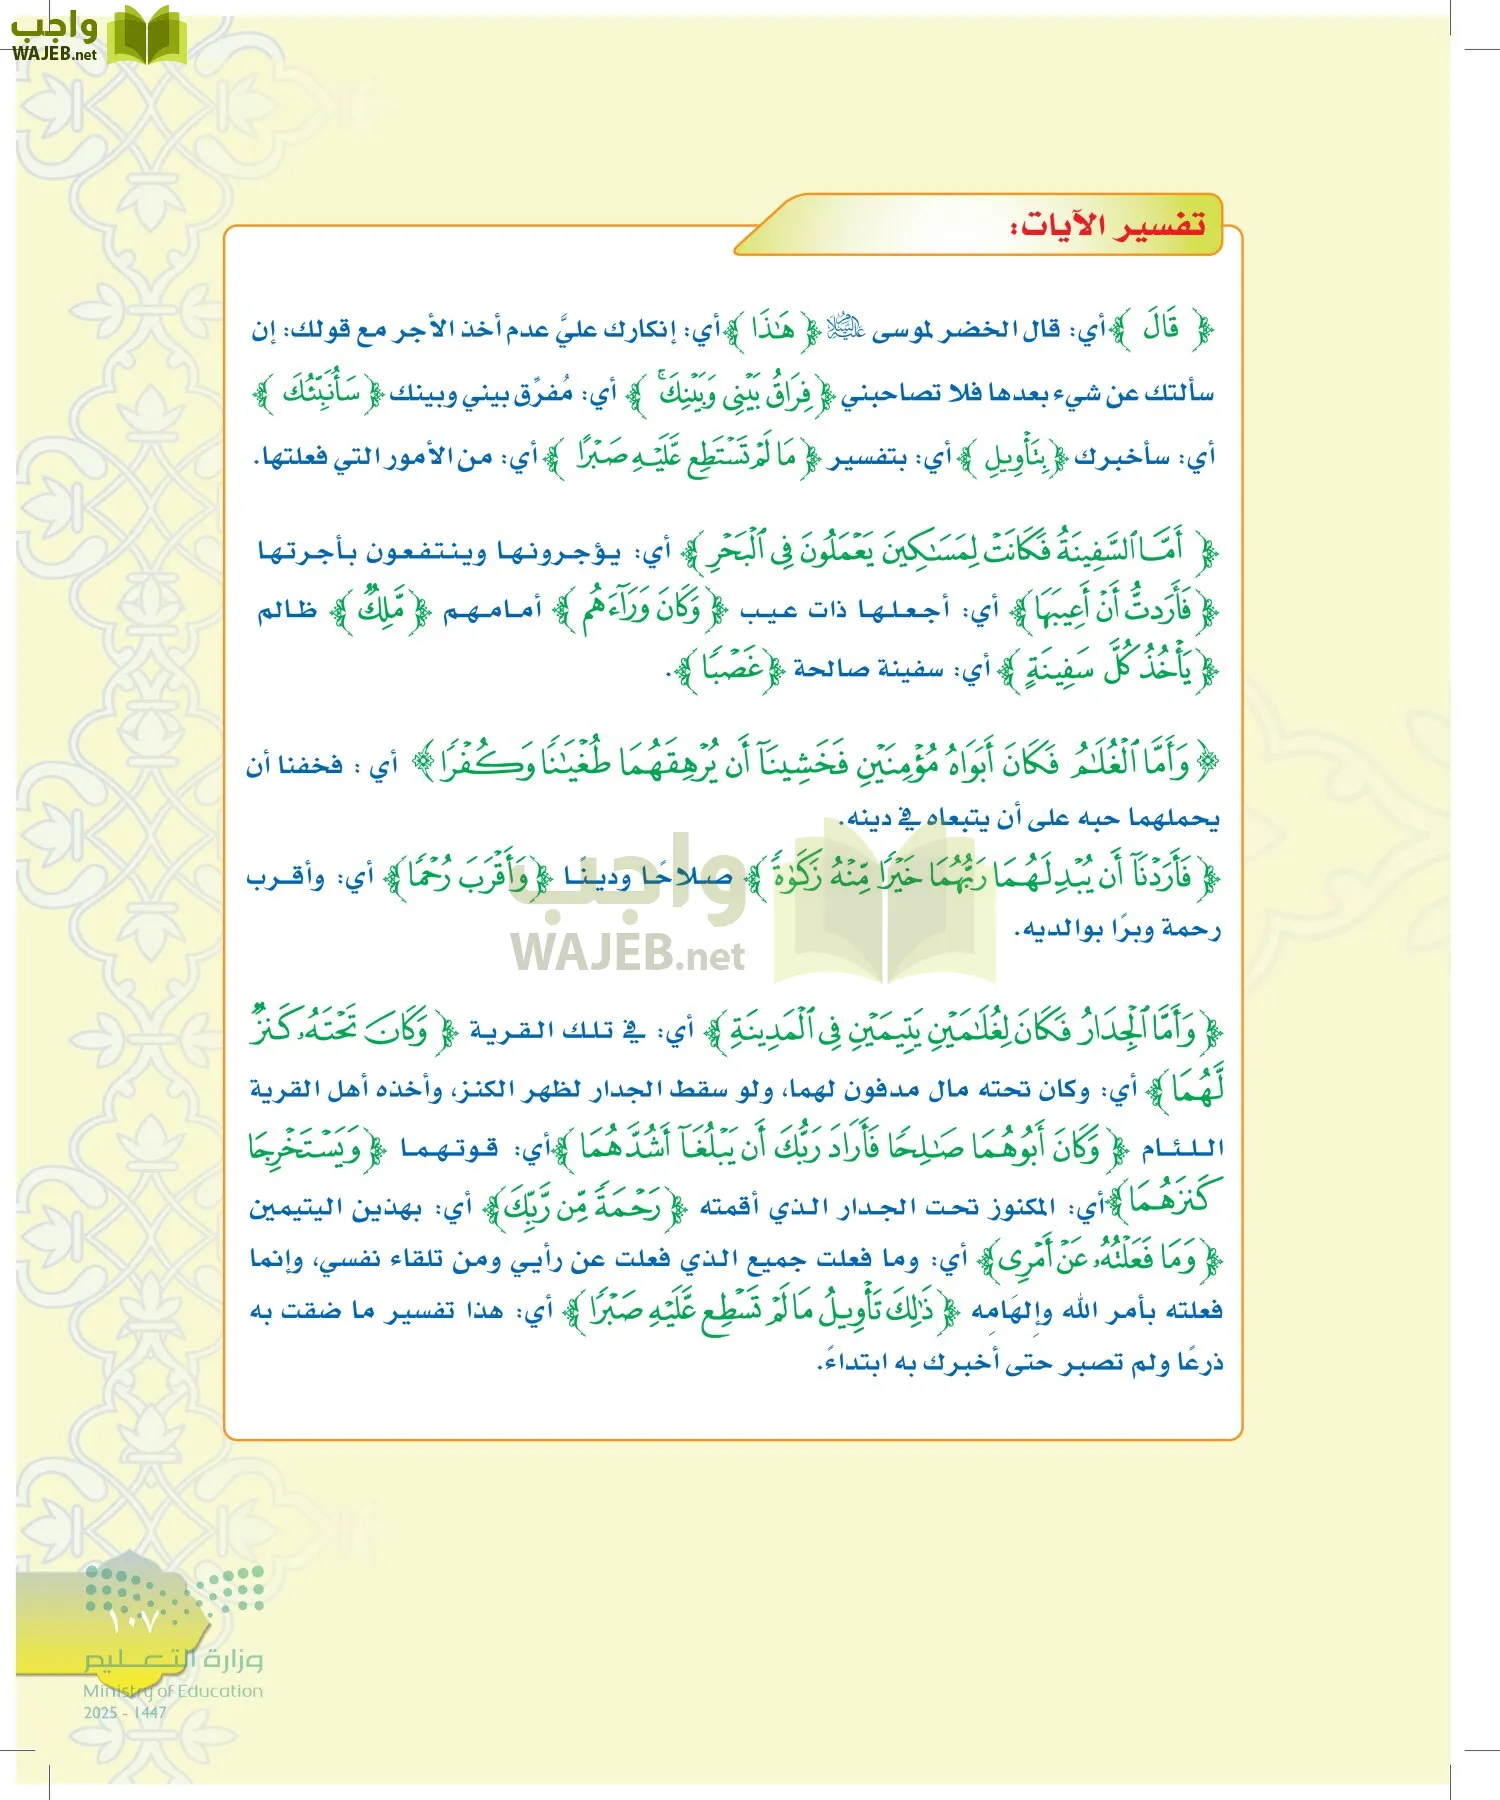 واجب
WAJEB.net
تفسير الآيات:
﴿ قَالَ ﴾ أي: قال الخضر لموسى عليه السلام ﴿ هَٰذَا ﴾ أي: إنكارك عليَّ عدم أخذ الأجر مع قولك: إن
سألتك عن شيء بعدها فلا تصاحبني ﴿ فِرَاقُ بَيْنِي وَبَيْنِكَ ۚ ﴾ أي: مُفرِّق بيني وبينك ﴿ سَأُنَبِّئُكَ ﴾
أي: سأخبرك ﴿ بِتَأْوِيلِ ﴾ أي: بتفسير ﴿ مَا لَمْ تَسْتَطِع عَّلَيْهِ صَبْرًا ﴾ أي: من الأمور التي فعلتها.
﴿ أَمَّا ٱلسَّفِينَةُ فَكَانَتْ لِمَسَٰكِينَ يَعْمَلُونَ فِى ٱلْبَحْرِ ﴾ أي: يؤجرونها وينتفعون بأجرتها
﴿ فَأَرَدتُّ أَنْ أَعِيبَهَا ﴾ أي: أجعلها ذات عيب ﴿ وَكَانَ وَرَآءَهُم ﴾ أمامهم ﴿ مَّلِكٌ ﴾ ظالم
﴿ يَأْخُذُ كُلَّ سَفِينَةٍ ﴾ أي: سفينة صالحة ﴿ غَصْبًا ﴾.
﴿ وَأَمَّا ٱلْغُلَٰمُ فَكَانَ أَبَوَاهُ مُؤْمِنَيْنِ فَخَشِينَآ أَن يُرْهِقَهُمَا طُغْيَٰنًا وَكُفْرًا ﴾ أي : فخفنا أن
يحملهما حبه على أن يتبعاه في دينه.
﴿ فَأَرَدْنَآ أَن يُبْدِلَهُمَا رَبُّهُمَا خَيْرًا مِّنْهُ زَكَوٰةً ﴾ صلاحًا ودينًا ﴿ وَأَقْرَبَ رُحْمًا ﴾ أي: وأقرب
رحمة وبرًا بوالديه.
واجب
WAJEB.net
﴿ وَأَمَّا ٱلْجِدَارُ فَكَانَ لِغُلَٰمَيْنِ يَتِيمَيْنِ فِى ٱلْمَدِينَةِ ﴾ أي: في تلك القرية ﴿ وَكَانَ تَحْتَهُۥ كَنزٌ
لَّهُمَا ﴾ أي: وكان تحته مال مدفون لهما، ولو سقط الجدار لظهر الكنز، وأخذه أهل القرية
اللئام ﴿ وَكَانَ أَبُوهُمَا صَٰلِحًا فَأَرَادَ رَبُّكَ أَن يَبْلُغَآ أَشُدَّهُمَا ﴾ أي: قوتهما ﴿ وَيَسْتَخْرِجَا
كَنزَهُمَا ﴾ أي: المكنوز تحت الجدار الذي أقمته ﴿ رَحْمَةً مِّن رَّبِّكَ ﴾ أي: بهذين اليتيمين
﴿ وَمَا فَعَلْتُهُۥ عَنْ أَمْرِى ﴾ أي: وما فعلت جميع الذي فعلت عن رأيي ومن تلقاء نفسي، وإنما
فعلته بأمر الله وإلهَامِه ﴿ ذَٰلِكَ تَأْوِيلُ مَا لَمْ تَسْطِع عَّلَيْهِ صَبْرًا ﴾ أي: هذا تفسير ما ضقت به
ذرعًا ولم تصبر حتى أخبرك به ابتداءً.
١٠٧
وزارة التعليم
Ministry of Education
2025 - 1447